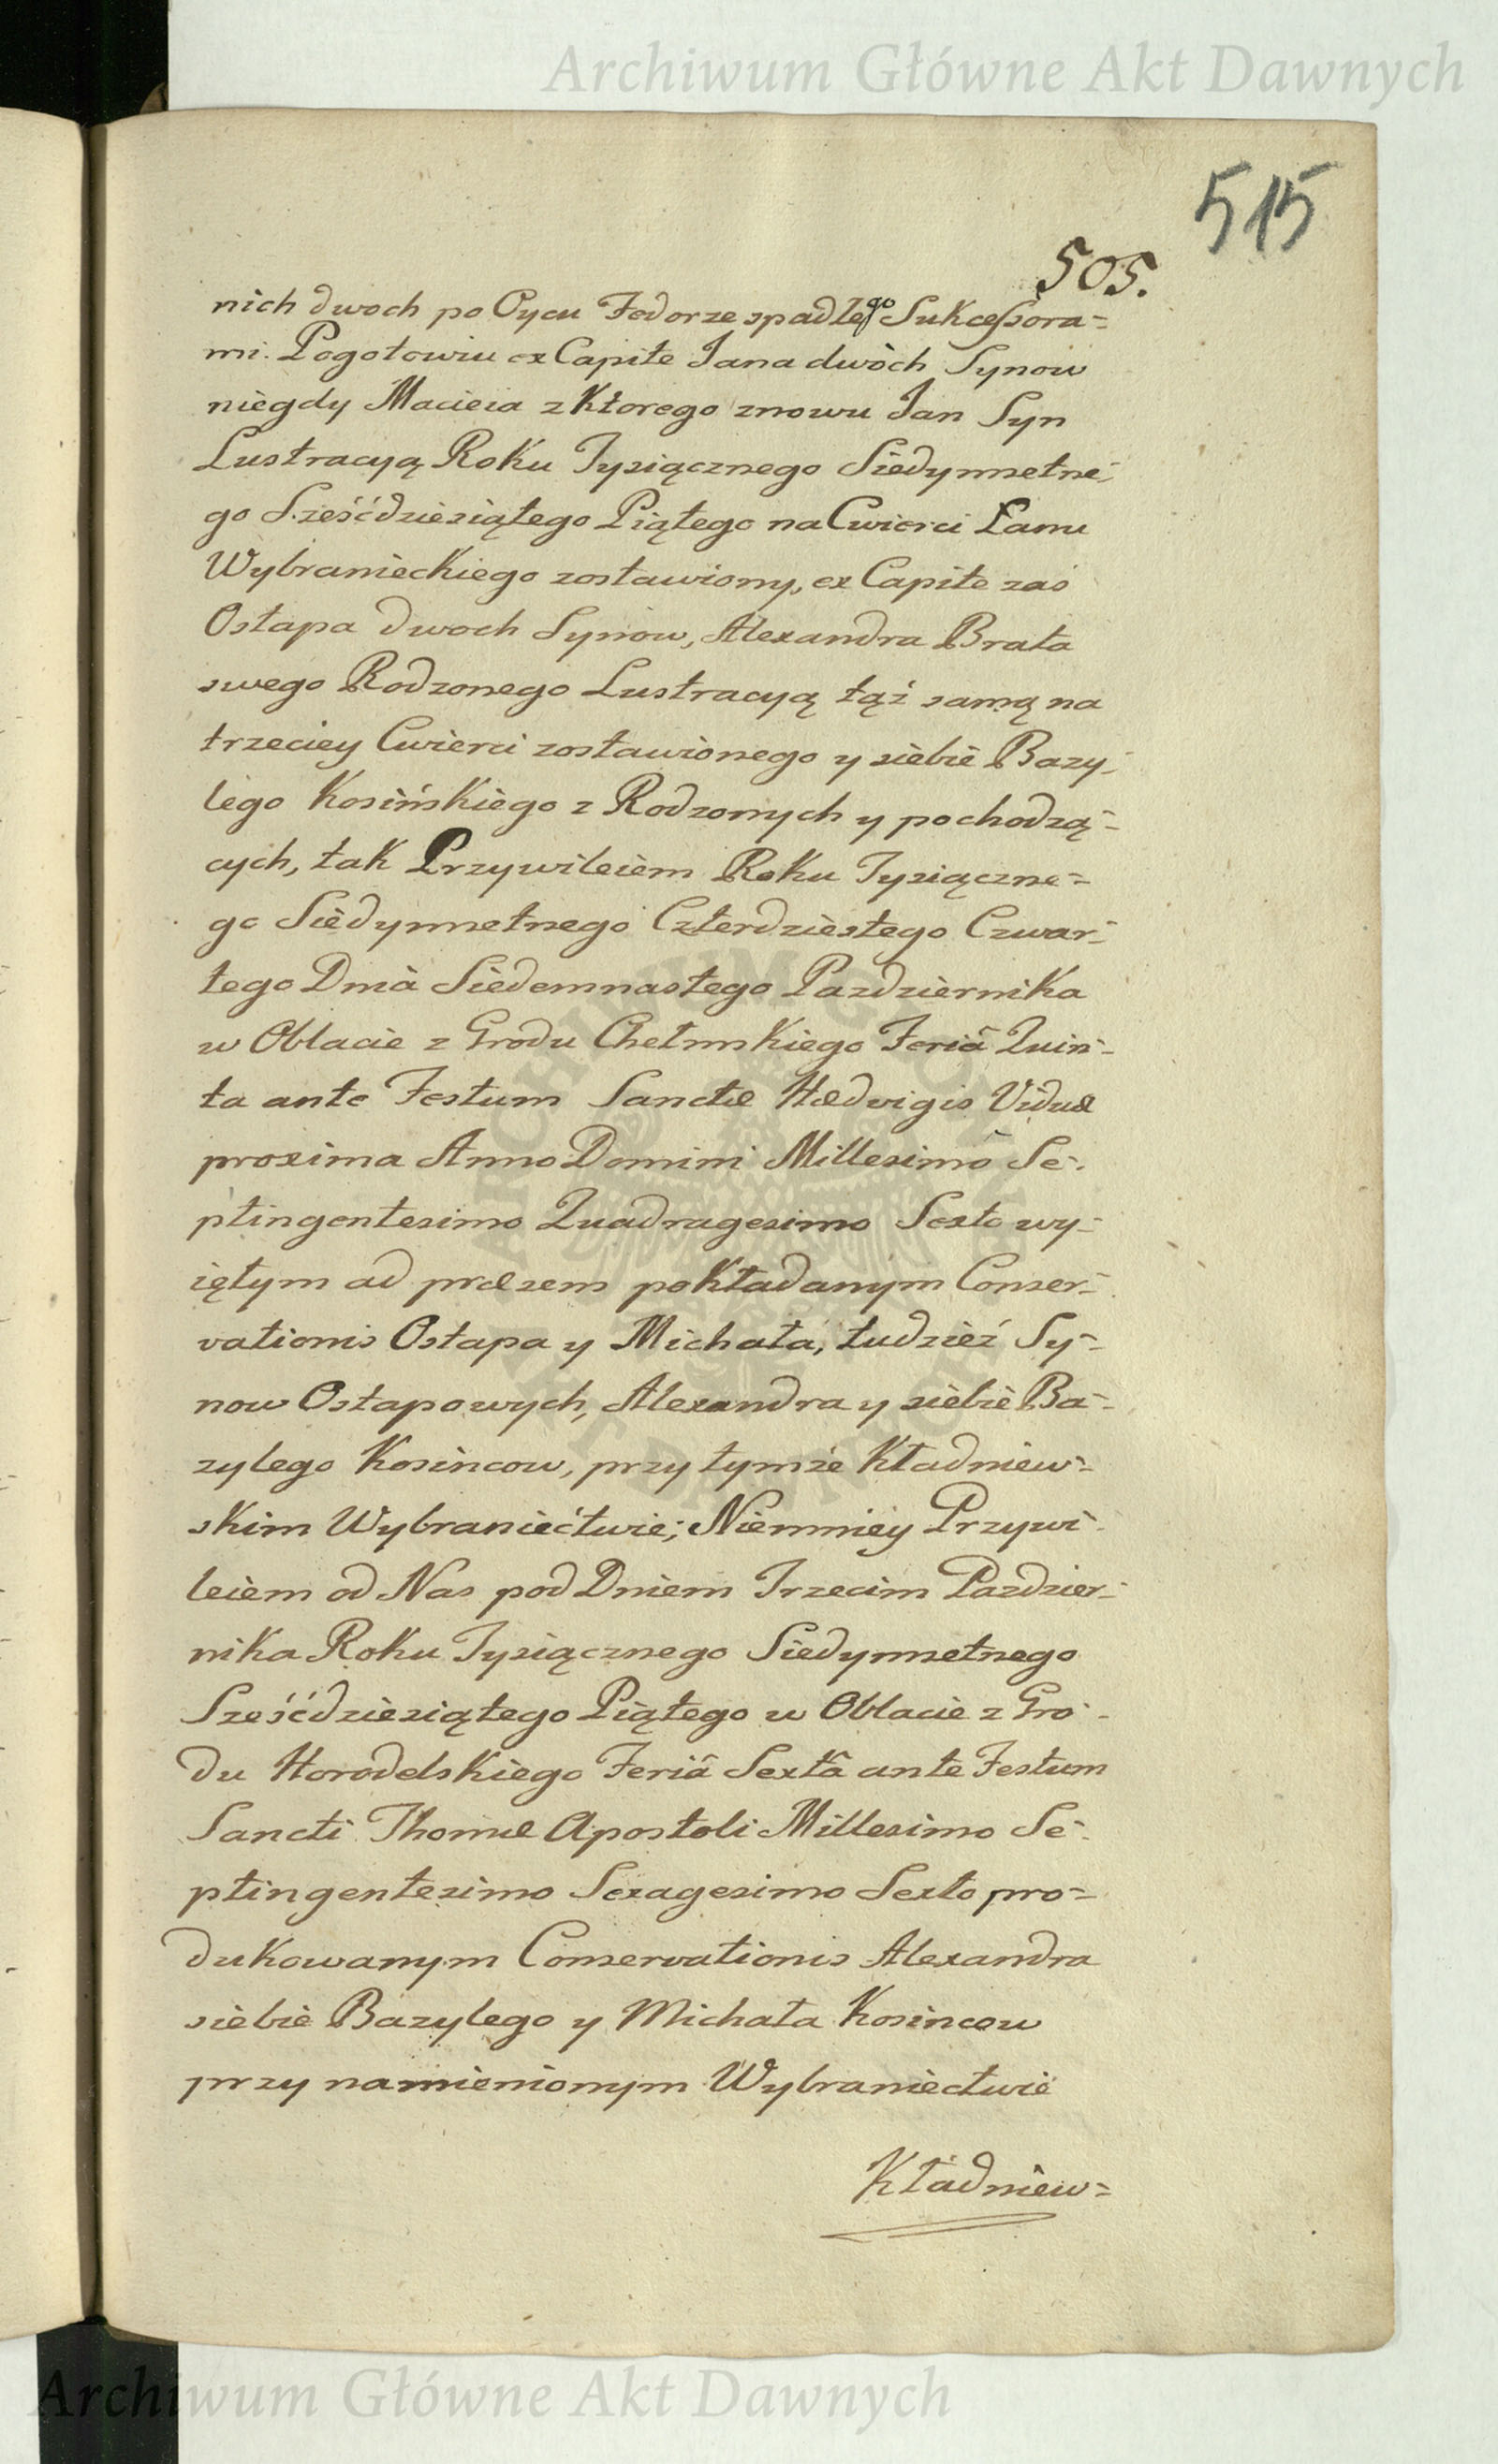 Archiwum Główne Akt Dawnych
515
505.
nich dwoch po Oycu Fedorze spadłego Sukcessora=
mi. Pogotowiu ex Capite Jana dwòch Synow
niegdy Macieia z Ktorego znowu Jan Syn
Lustracyą Roku Tysiącznego Siedymsetne=
go Sześćdziesiątego Piątego na Cwierci Łanu
Wybranieckiego zostawiony, ex Capite zaś
Ostapa dwoch Synow, Alexandra Brata
swego Rodzonego Lustracyą tąż samą na
trzeciey Cwierci zostawionego y siebie Bazy=
lego Kosińskiego z Rodzonych y pochodzą=
cych, tak Przywileiem Roku Tysiączne=
go Siedymsetnego Czterdziestego Czwar=
tego Dnia Siedemnastego Pazdziernika
w Oblacie z Grodu Chełmskiego Feriâ Quin=
ta ante Festum Sanctæ Hædvigis Viduæ
proxima Anno Domini Millesimô Se=
ptingentesimo Quadragesimo Sexto wy=
iętym ad præsem pokładanym Conser=
vationis Ostapa y Michała, tudzież Sy=
now Ostapowych, Alexandra y siebie Ba=
zylego Kosincow, przy tymże Kładniew=
skim Wybraniectwie; Niemniey Przywi=
leiem od Nas pod Dniem Trzecim Pazdzier=
nika Roku Tysiącznego Siedymsetnego
Sześćdziesiątego Piątego w Oblacie z Gro=
du Horodelskiego Feriâ Sextâ ante Festum
Sancti Thomæ Apostoli Millesimo Se=
ptingentesimo Sexagesimo Sexto pro=
dukowanym Conservationis Alexandra
siebie Bazylego y Michała Kosincow
przy namienionym Wybraniectwie
Kładniew=
Archiwum Główne Akt Dawnych